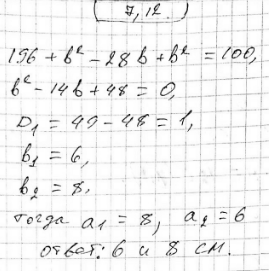 (7,12.)
196 + b² - 28b + b² = 100,
b² - 14b + 48 = 0,
D₁ = 49 - 48 = 1,
b₁ = 6,
b₂ = 8.
тогда a₁ = 8, a₂ = 6
ответ: 6 и 8 см.